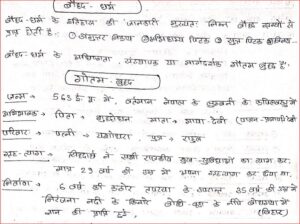 बौद्ध - धर्म
बौद्ध-धर्म के इतिहास की जानकारी मुख्यतः निम्न बौद्ध ग्रन्थों से
प्राप्त होती है : ① अंगुत्तर निकाय ② अभिधम्म पिटक ③ सुत्त पिटक
बौद्ध-धर्म के संस्थापक या मार्गदर्शक गौतम बुद्ध हैं
गौतम-बुद्ध
जन्म → 563 ई. पू. में, वर्तमान नेपाल के लुम्बनी के कपिलवस्तु में
पिता - शुद्धोधन माता - माया देवी
परिवार - पत्नी - यशोधरा पुत्र - राहुल
गृह-त्याग → सिद्धार्थ ने सभी राजकीय सुख-सुविधाओं का त्याग कर,
मात्र 29 वर्ष की उम्र में अपना गृहत्याग कर दिया था.
निर्वाण → 6 वर्ष की कठोर तपस्या के उपरान्त 35 वर्ष की उम्र में
निरंजना नदी के किनारे बोधि-वृक्ष के नीचे बोधगया में
ज्ञान की प्राप्ति हुई. (बिहार)